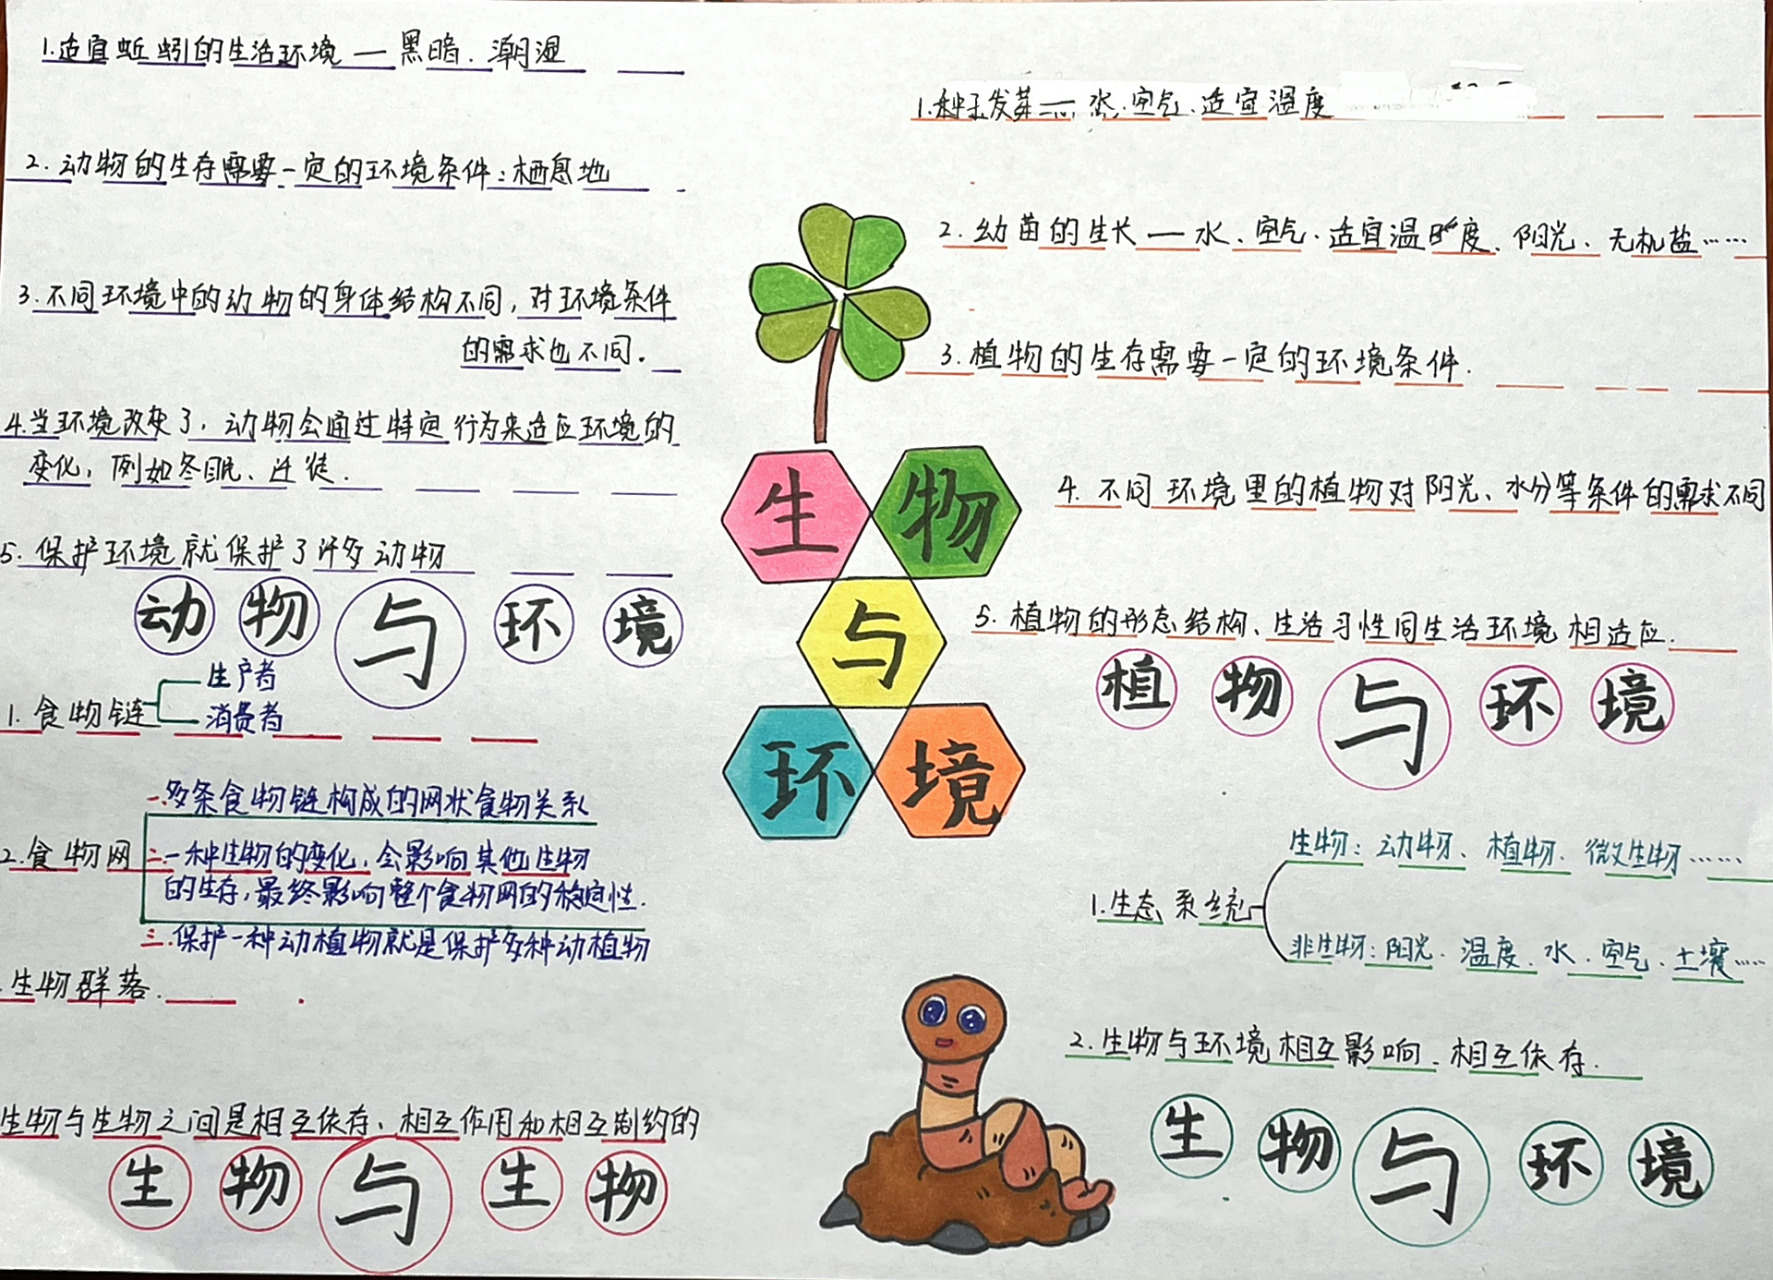 1.适宜蚯蚓的生活环境一黑暗.潮湿
2.动物的生存需要一定的环境条件:栖息地
3.不同环境中的动物的身体结构不同,对环境条件
的需求也不同.
4.当环境改变了,动物会通过特定行为来适应环境的
变化,例如冬眠、迁徙.
5.保护环境就保护了许多动物
动物与环境
1.食物链
生产者
消费者
一.多条食物链构成的网状食物关系
2.食物网
二.一种生物的变化,会影响其他生物
的生存,最终影响整个食物网的稳定性.
三.保护一种动植物就是保护多种动植物
.生物群落.
生物与生物之间是相互依存、相互作用和相互制约的
生物与生物
生物
与
环境
1.种子发芽一水.空气.适宜温度
2.幼苗的生长一水、空气.适宜温度、阳光、无机盐……
3.植物的生存需要一定的环境条件.
4.不同环境里的植物对阳光、水分等条件的需求不同
5.植物的形态结构、生活习性同生活环境相适应.
植物与环境
生物:动物、植物.微生物……
1.生态系统
非生物:阳光.温度.水.空气.土壤……
2.生物与环境相互影响.相互依存.
生物与环境